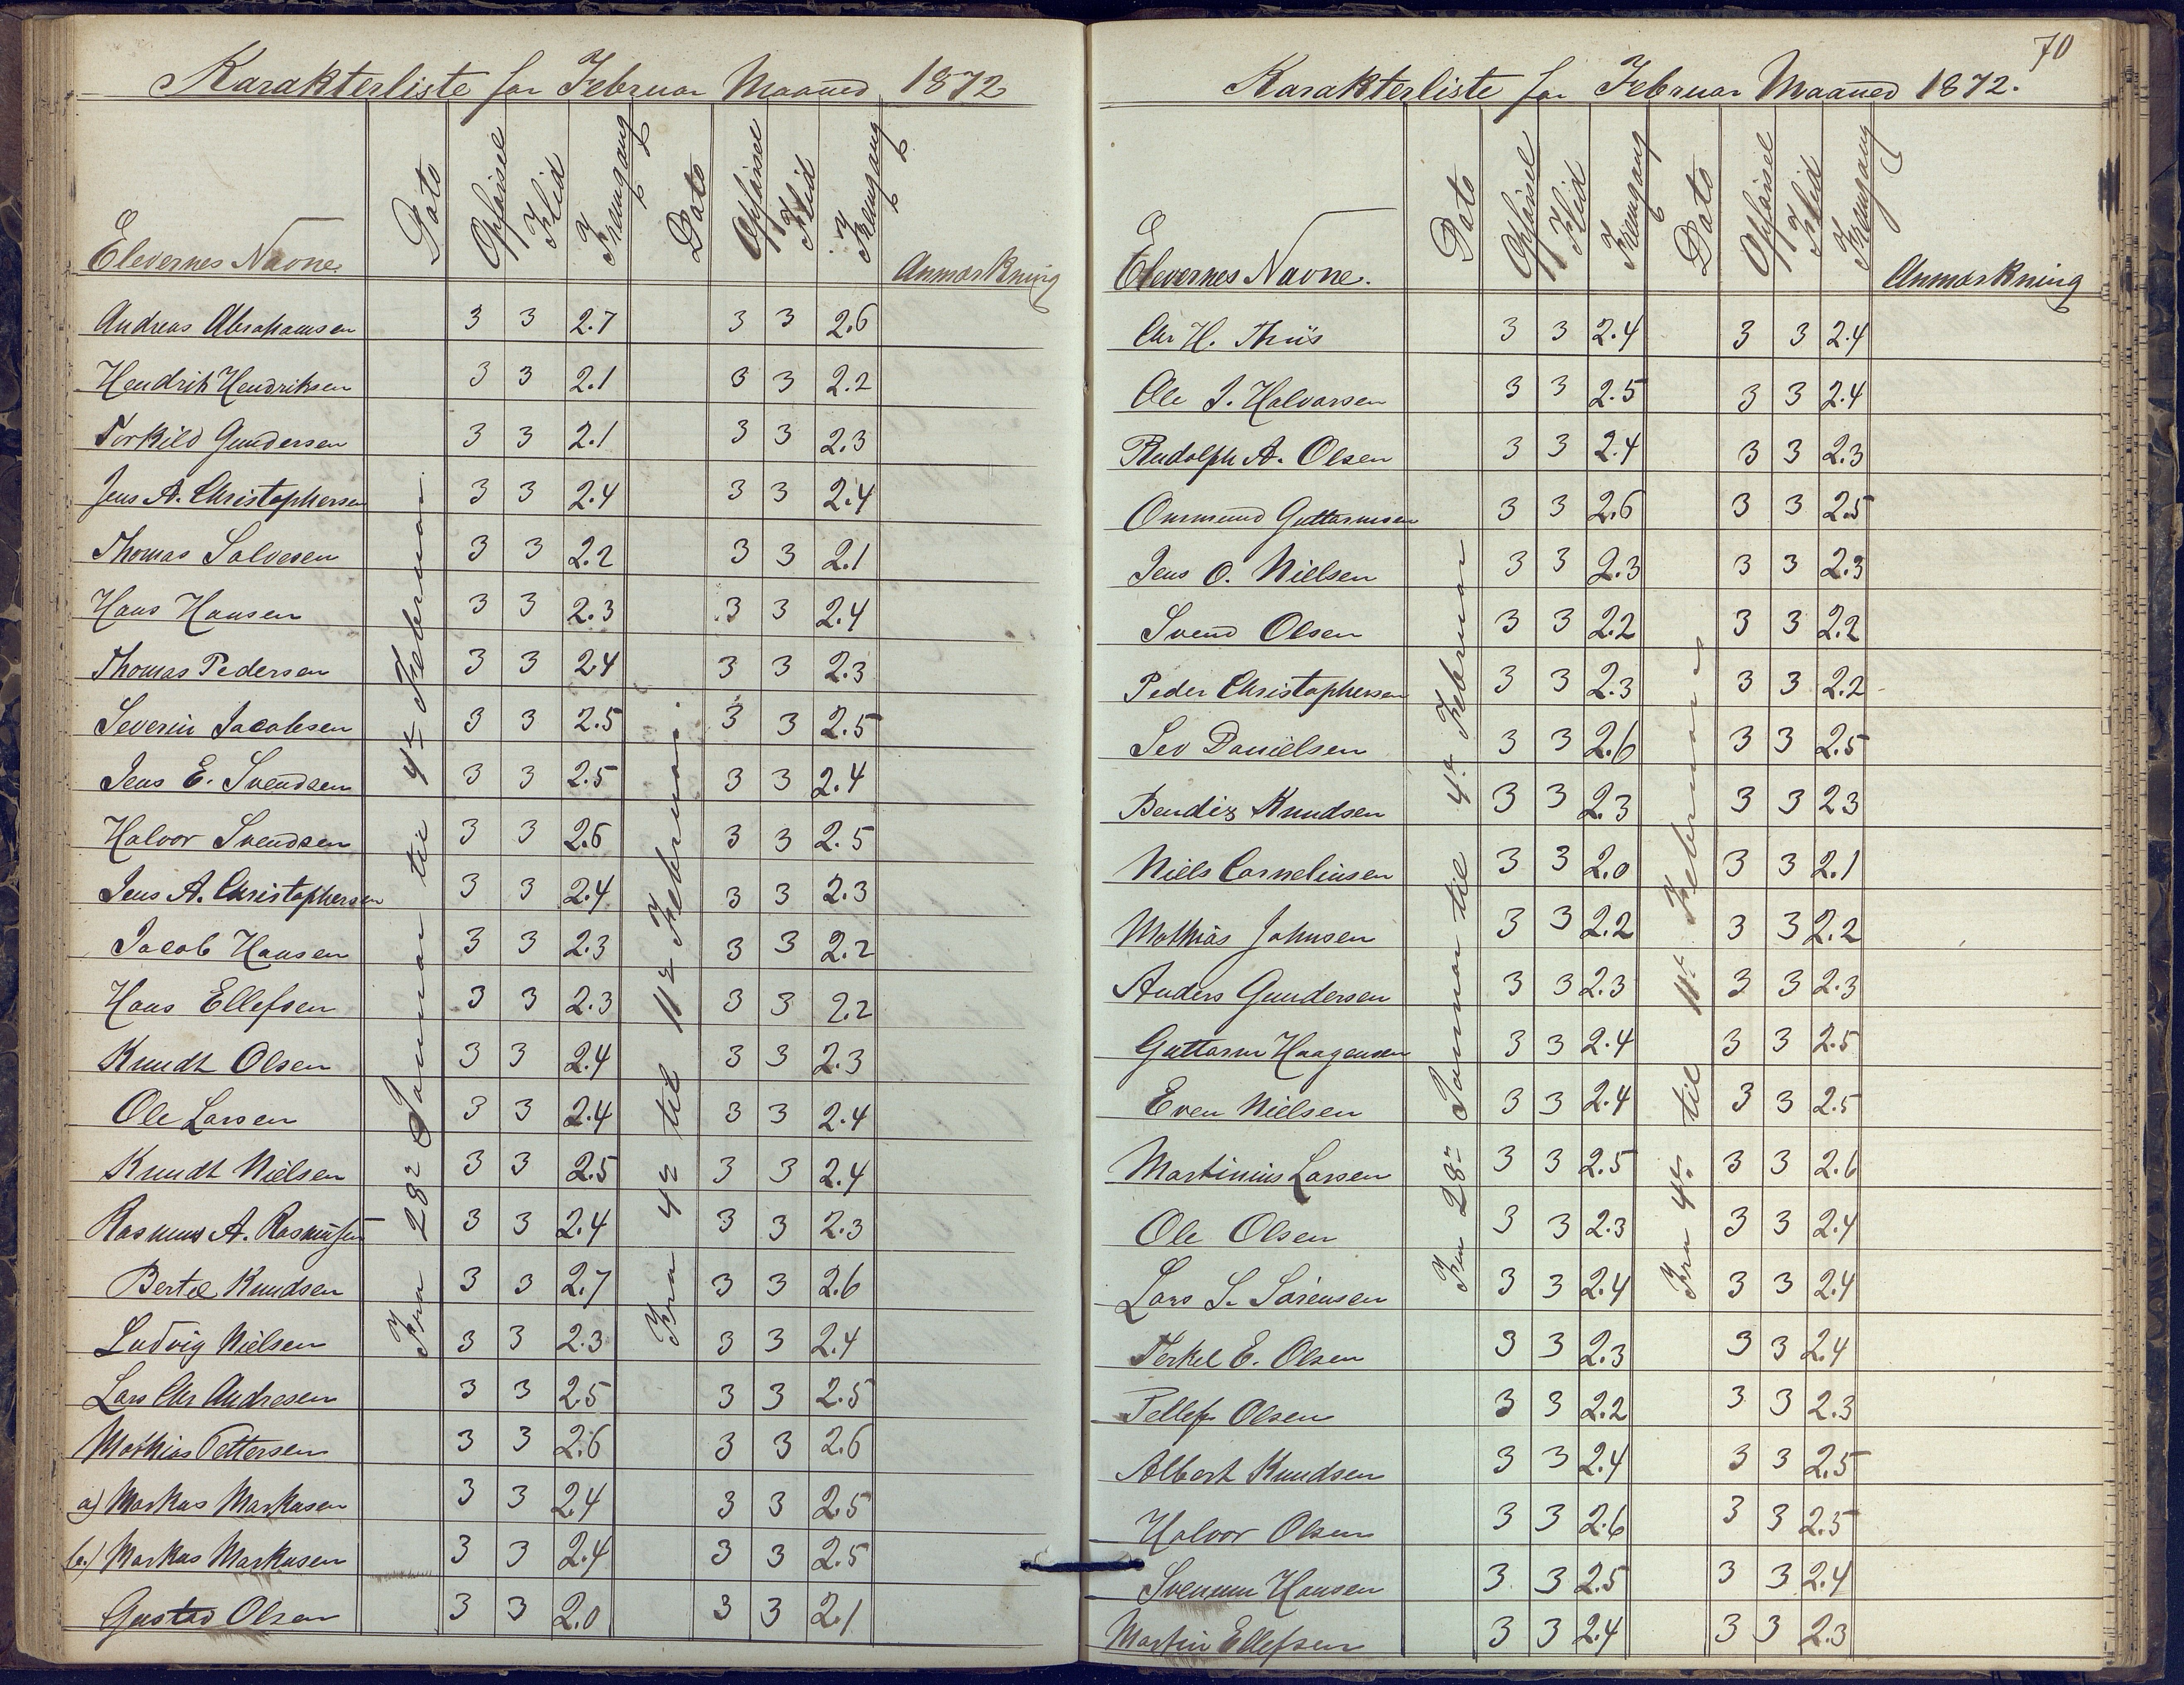 Karakterliste for Februar Maaned 1872
Elevernes Navne. Dato Opførsel Flid Fremgang Dato Opførsel Flid Fremgang Anmærkning
Fra 28de Januar til 4de Februar
Fra 4de til 11te Februar.
Andreas Abrahamsen 3 3 2.7 3 3 2.6
Hendrik Hendriksen 3 3 2.1 3 3 2.2
Torkild Gundersen 3 3 2.1 3 3 2.3
Jens A. Christophersen 3 3 2.4 3 3 2.4
Thomas Salvesen 3 3 2.2 3 3 2.1
Hans Hansen 3 3 2.3 3 3 2.4
Thomas Pedersen 3 3 2.4 3 3 2.3
Severin Jacobsen 3 3 2.5 3 3 2.5
Jens E. Svendsen 3 3 2.5 3 3 2.4
Halvor Svendsen 3 3 2.6 3 3 2.5
Jens A. Christophersen 3 3 2.4 3 3 2.3
Jacob Hansen 3 3 2.3 3 3 2.2
Hans Ellefsen 3 3 2.3 3 3 2.2
Knudt Olsen 3 3 2.4 3 3 2.3
Ole Larsen 3 3 2.4 3 3 2.4
Knudt Nielsen 3 3 2.5 3 3 2.4
Rasmus A. Rasmusen 3 3 2.4 3 3 2.3
Bertel Knudsen 3 3 2.7 3 3 2.6
Ludvig Nielsen 3 3 2.3 3 3 2.4
Lars Chr Andresen 3 3 2.5 3 3 2.5
Mathias Pettersen 3 3 2.6 3 3 2.6
a) Markus Markusen 3 3 2.4 3 3 2.5
b.) Markus Markusen 3 3 2.4 3 3 2.5
Gustav Olsen 3 3 2.0 3 3 2.1
70
Karakterliste for Februar Maaned 1872.
Elevernes Navne. Dato Opførsel Flid Fremgang Dato Opførsel Flid Fremgang Anmærkning
Fra 28de Januar til 4de Februar
Fra 4de til 11te Februar
Chr H. Thiis 3 3 2.4 3 3 2.4
Ole J. Halvorsen 3 3 2.5 3 3 2.4
Rudolph A. Olsen 3 3 2.4 3 3 2.3
Ommund Guttormsen 3 3 2.6 3 3 2.5
Jens O. Nielsen 3 3 2.3 3 3 2.3
Svend Olsen 3 3 2.2 3 3 2.2
Peder Christophersen 3 3 2.3 3 3 2.2
Danielsen 3 3 2.6 3 3 2.5
Bendix Knudsen 3 3 2.3 3 3 2.3
Niels Corneliusen 3 3 2.0 3 3 2.1
Mathias Johnsen 3 3 2.2 3 3 2.2
Anders Gundersen 3 3 2.3 3 3 2.3
Guttorm Haagensen 3 3 2.4 3 3 2.5
Even Nielsen 3 3 2.4 3 3 2.5
Martinius Larsen 3 3 2.5 3 3 2.6
Ole Olsen 3 3 2.3 3 3 2.4
Lars S. Sörensen 3 3 2.4 3 3 2.4
Terkel E. Olsen 3 3 2.3 3 3 2.4
Tellef Olsen 3 3 2.2 3 3 2.3
Albert Knudsen 3 3 2.4 3 3 2.5
Halvor Olsen 3 3 2.6 3 3 2.5
Svenum Hansen 3 3 2.5 3 3 2.4
Martin Ellefsen 3 3 2.4 3 3 2.3